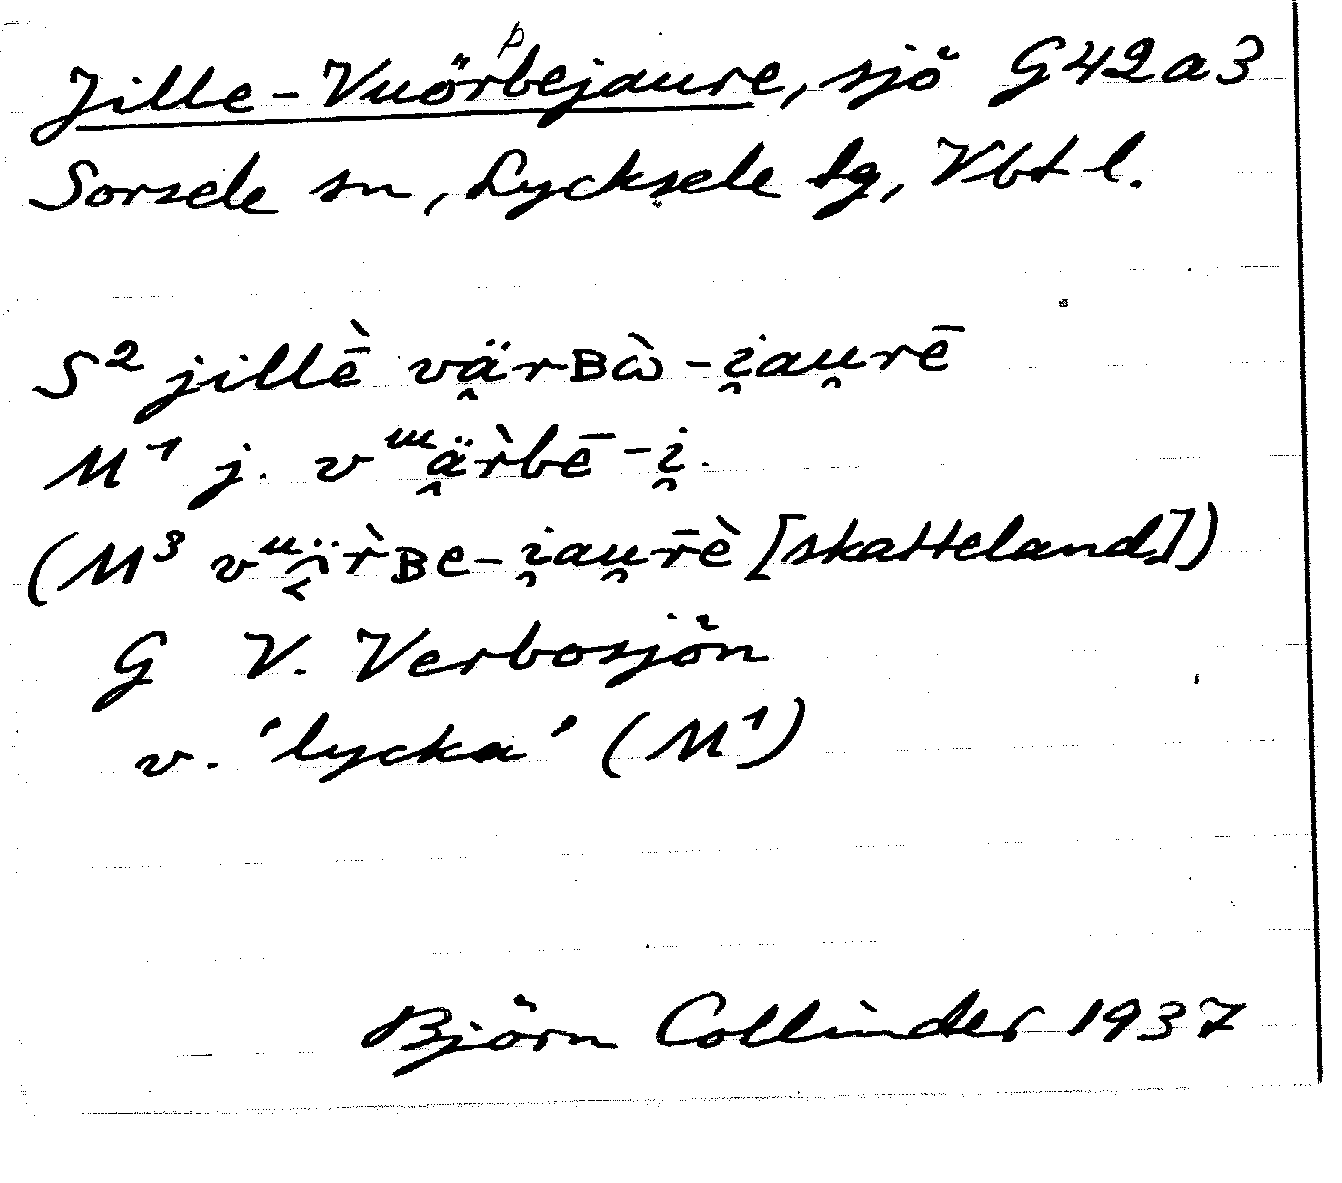 p
Jille-Vuörbejaure, sjö G42a3
Sorsele sn, Lycksele lg, Vbt l.
S² jillḕ vä̯rʙὼ-i̯au̯rē
M⁻¹ j. vᵚä̯r̀bē-i̯.
(M³ vᵘïr̀ʙe-i̯au̯r̄è [skatteland])
G V. Verbosjön
v. 'lycka' (M¹)
Björn Collinder 1937